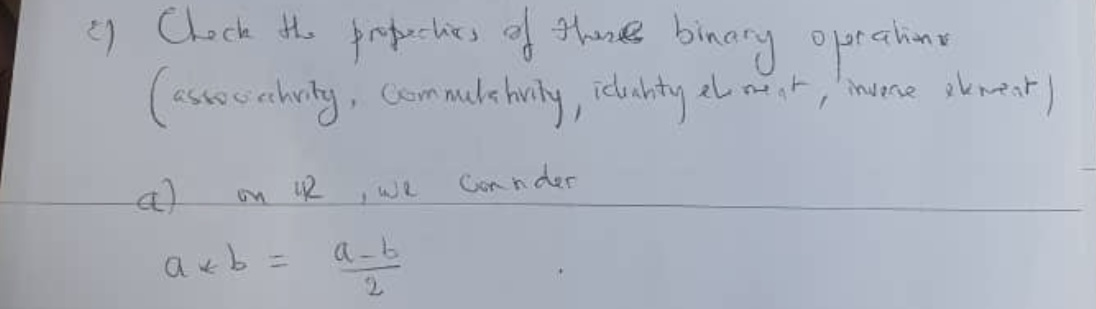 2) Check the properties of these binary operations
(associativity, commutativity, identity element, inverse element)
a) on ℝ, we consider
a * b = (a - b)/2